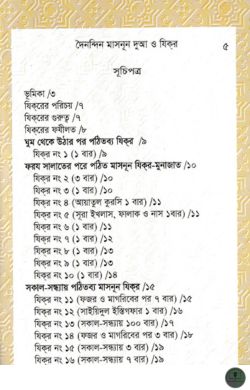 দৈনন্দিন মাসনূন দুআ ও যিক্‌র ৫
সূচিপত্র
ভূমিকা /৩
যিকরের পরিচয় /৭
যিকরের গুরুত্ব /৭
যিকরের ফযীলত /৮
ঘুম থেকে উঠার পর পঠিতব্য যিক্‌র /৯
যিক্‌র নং ১ (১ বার) /৯
ফরয সালাতের পরে পঠিত মাসনূন যিক্‌র-মুনাজাত /১০
যিক্‌র নং ২ (৩ বার) /১০
যিক্‌র নং ৩ (১ বার) /১০
যিক্‌র নং ৪ (আয়াতুল কুরসি ১ বার) /১১
যিক্‌র নং ৫ (সূরা ইখলাস, ফালাক ও নাস ১বার) /১১
যিক্‌র নং ৬ (১ বার) /১১
যিক্‌র নং ৭ (১ বার) /১২
যিক্‌র নং ৮ (১ বার) /১৩
যিক্‌র নং ৯ (১ বার) /১৩
যিক্‌র নং ১০ (১ বার) /১৪
সকাল-সন্ধ্যায় পঠিতব্য মাসনূন যিক্‌র /১৫
যিক্‌র নং ১১ (ফজর ও মাগরিবের পর ৭ বার) /১৫
যিক্‌র নং ১২ (সাইয়িদুল ইস্তিগফার ১ বার) /১৬
যিক্‌র নং ১৩ (সকাল-সন্ধ্যায় ১০০ বার) /১৭
যিক্‌র নং ১৪ (ফজর ও মাগরিবের পর ৩ বার) /১৮
যিক্‌র নং ১৫ (সকাল-সন্ধ্যায় ৩ বার) /১৯
যিক্‌র নং ১৬ (সকাল-সন্ধ্যায় ৭ বার) /১৯